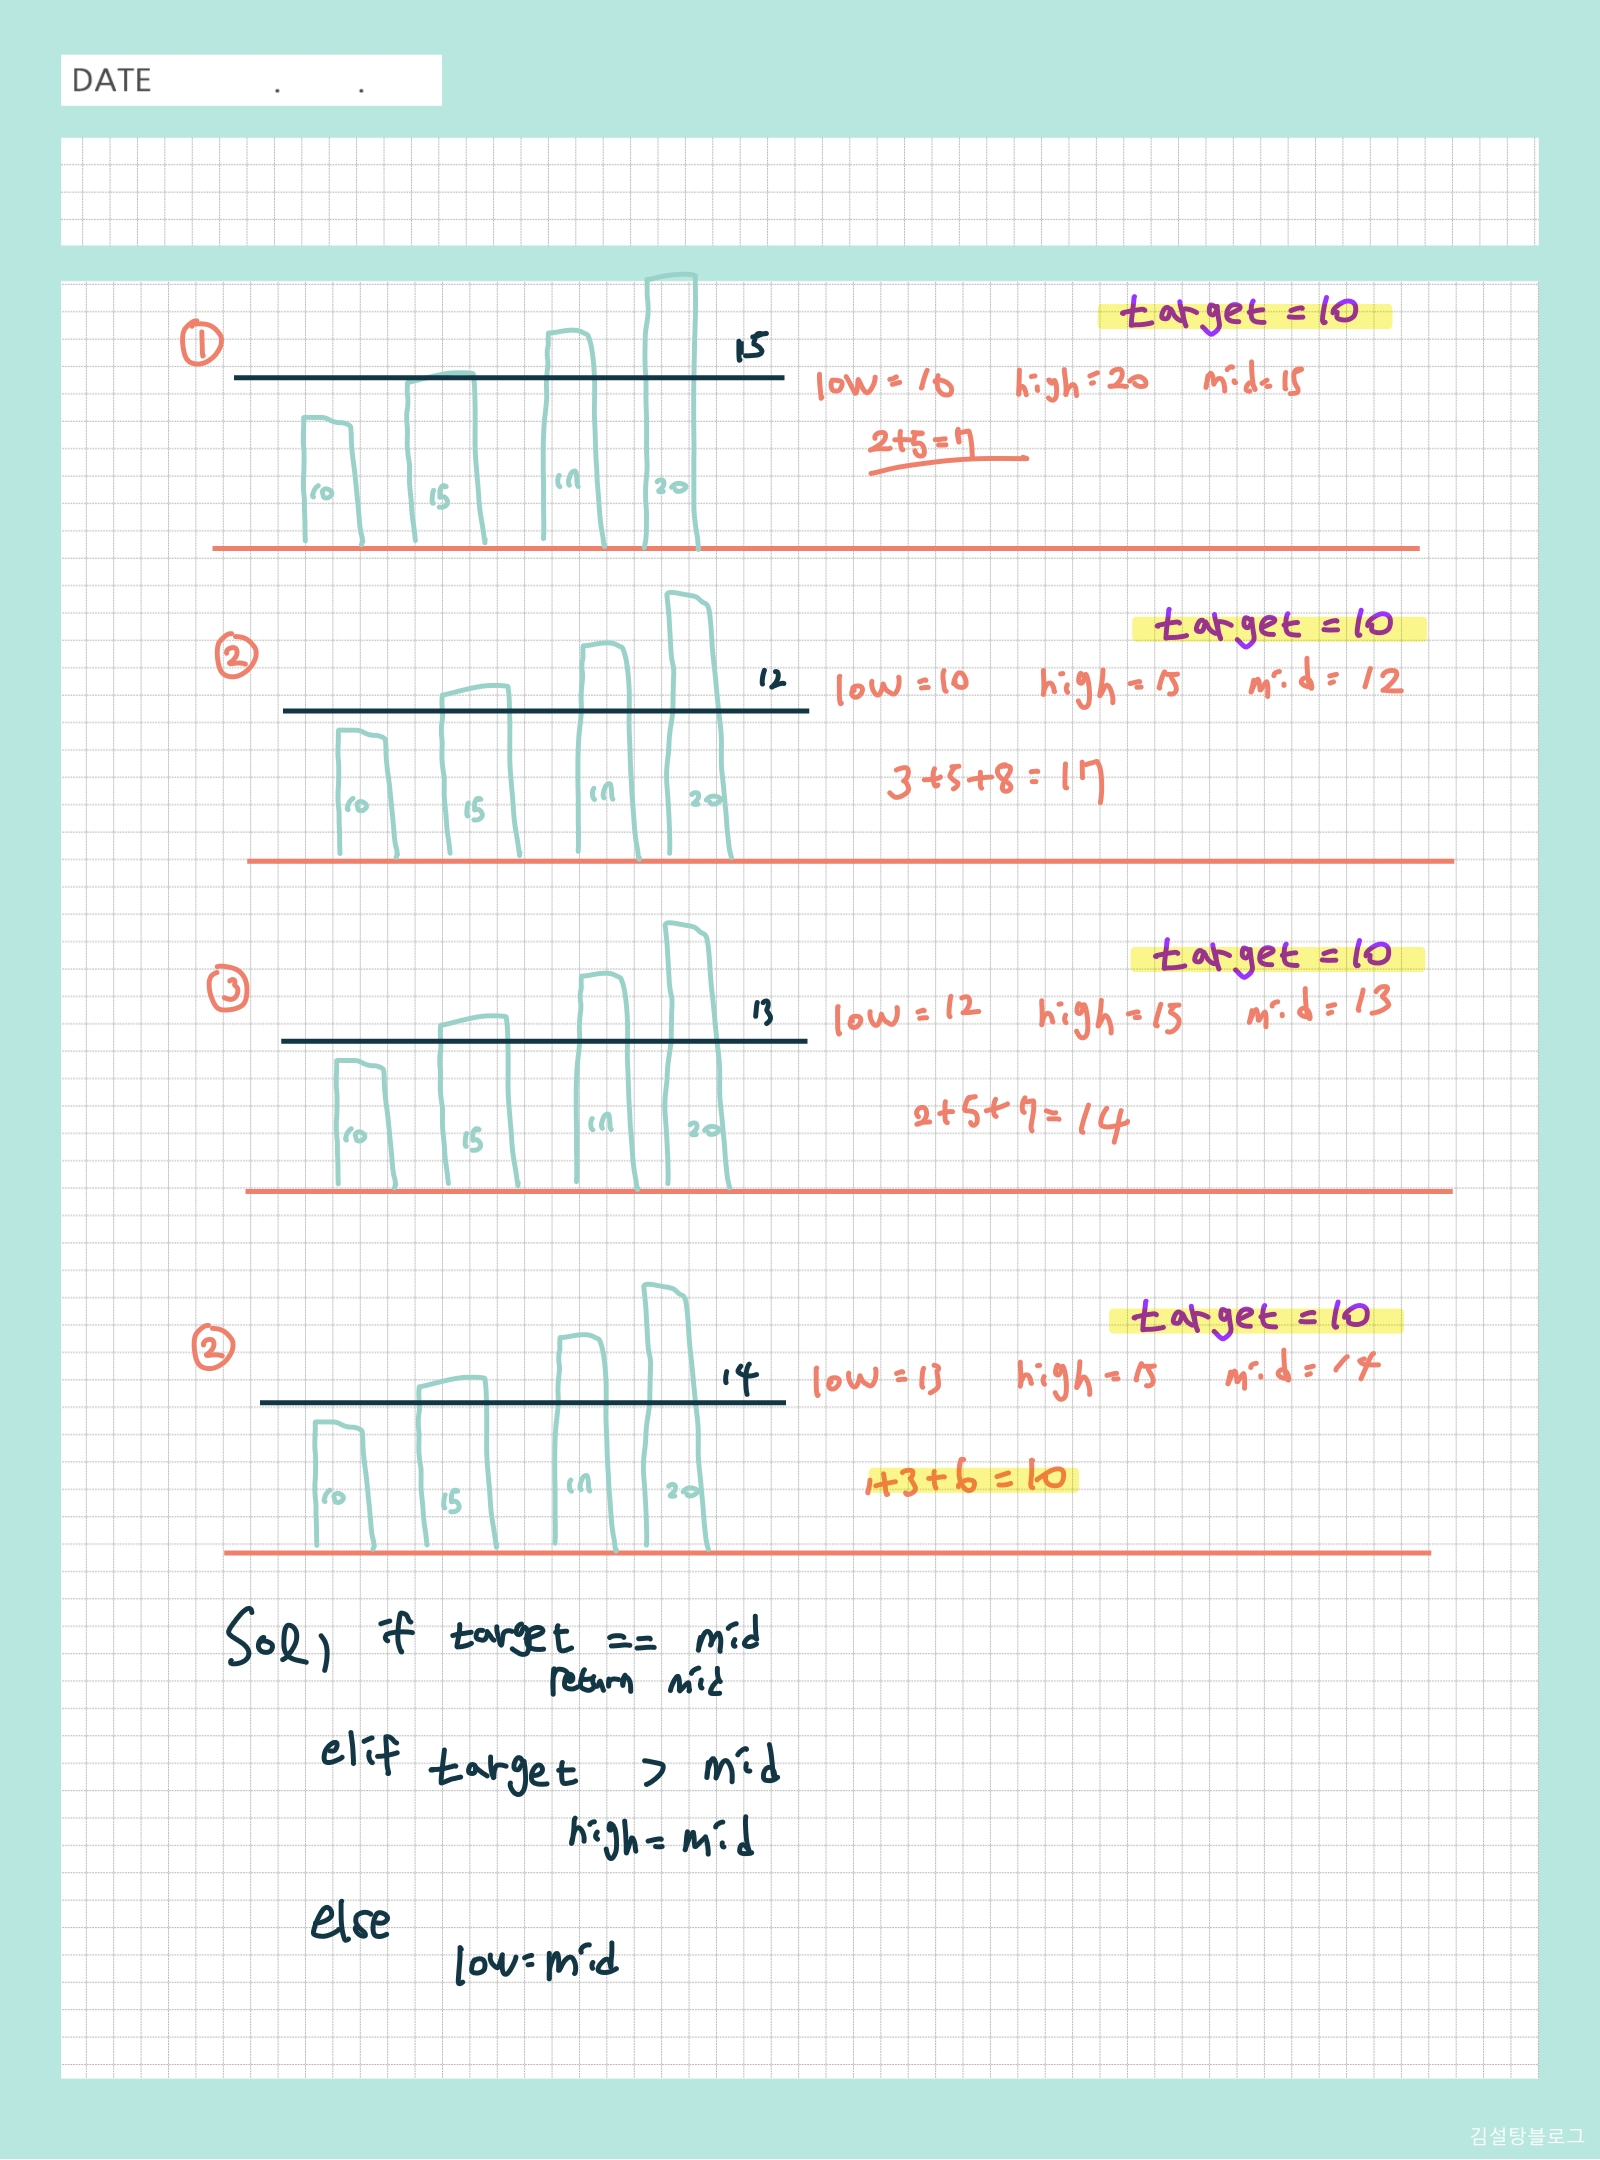 DATE . .
① 15 target = 10
low = 10 high = 20 mid = 15
2+5=7
10 15 17 20
② 12 target = 10
low = 10 high = 15 mid = 12
3+5+8 = 17
10 15 17 20
③ 13 target = 10
low = 12 high = 15 mid = 13
2+5+7 = 14
10 15 17 20
② 14 target = 10
low = 13 high = 15 mid = 14
1+3+6 = 10
10 15 17 20
Sol) if target == mid
return mid
elif target > mid
high = mid
else
low = mid
김설탕블로그